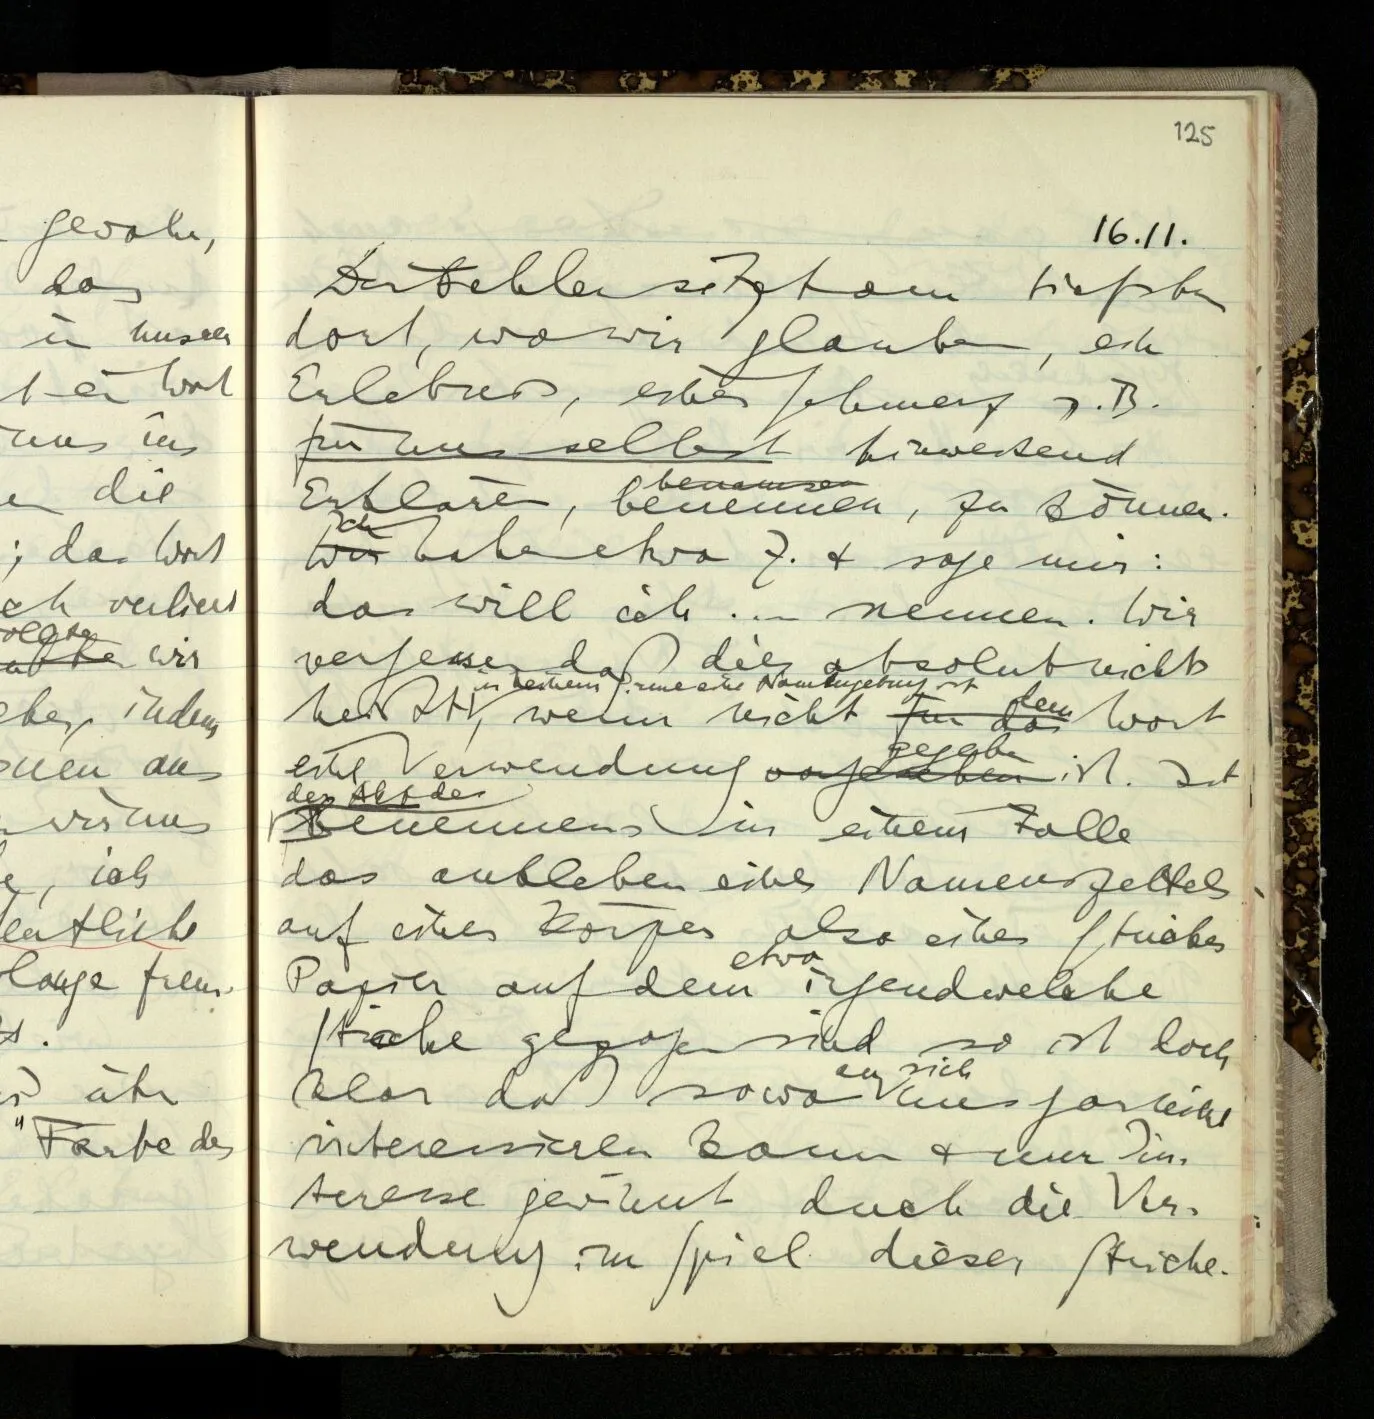 125
16.11.
Der Fehler sitzt am tiefsten
dort, wo wir glauben, ein
Erlebnis, einen Schmerz z.B.
für uns selbst hinweisend
benamsen
Erklären, benennen, zu können.
Ich
Wir habe etwa Z. + sage mir:
das will ich ... nennen. Wir
vergessen daß dies absolut nichts
in keinem Sinne eine Namengebung ist
heißt, wenn nicht für das dem Wort
gegeben
eine Verwendung vorgesehen ist. Ist
der Akt des
Benennens in einem Falle
das ankleben eines Namenszettels
auf einen Körper also eines Stückes
etwa
Papier auf dem irgendwelche
Striche gezogen sind so ist doch
an sich
klar daß sowas uns gar nicht
interessieren kann + nur In-
teresse gewinnt durch die Ver-
wendung im Spiel dieser Striche.
gewahr,
das
in unserer
ein Wort
uns ins
die
; das Wort
verliert
wir
indem
an
wir uns
, ich
"Farbe des